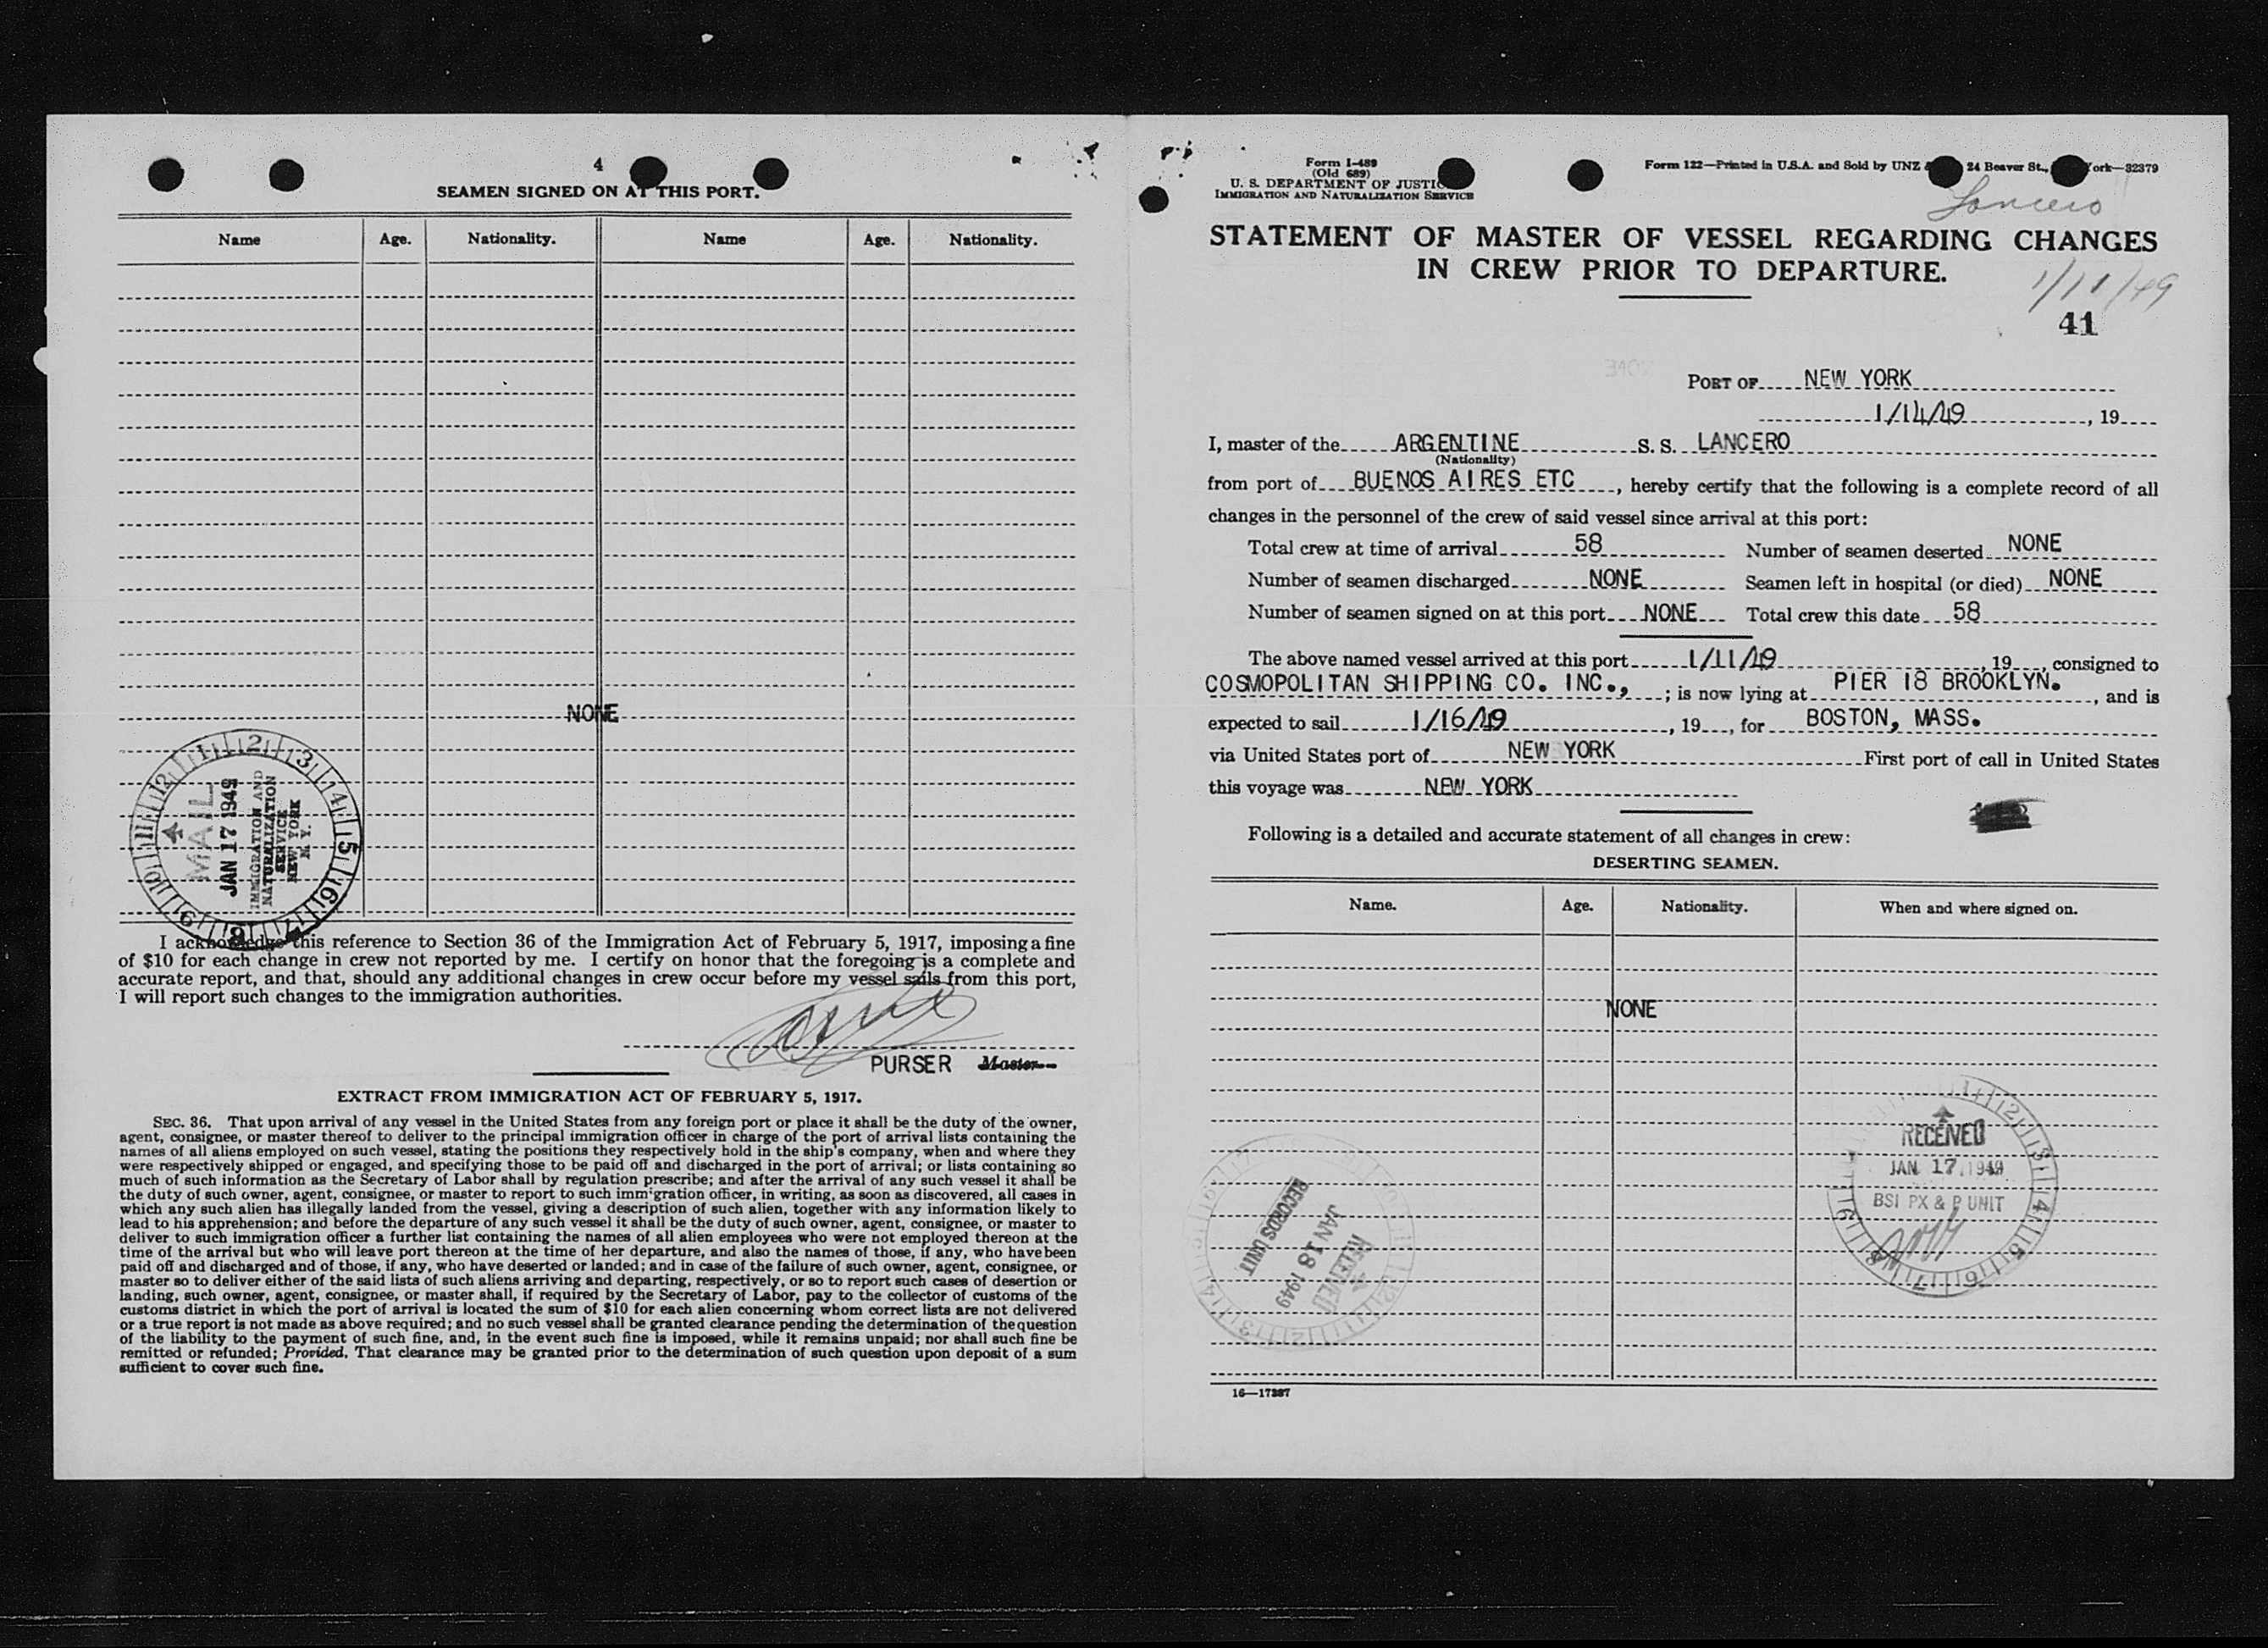 4
SEAMEN SIGNED ON AT THIS PORT.
Name Age. Nationality. Name Age. Nationality.
NONE
MAIL
JAN 17 1949
IMMIGRATION AND
NATURALIZATION
SERVICE
NEW YORK
N. Y.
I acknowledge this reference to Section 36 of the Immigration Act of February 5, 1917, imposing a fine
of $10 for each change in crew not reported by me. I certify on honor that the foregoing is a complete and
accurate report, and that, should any additional changes in crew occur before my vessel sails from this port,
I will report such changes to the immigration authorities.
PURSER Master
EXTRACT FROM IMMIGRATION ACT OF FEBRUARY 5, 1917.
SEC. 36. That upon arrival of any vessel in the United States from any foreign port or place it shall be the duty of the owner,
agent, consignee, or master thereof to deliver to the principal immigration officer in charge of the port of arrival lists containing the
names of all aliens employed on such vessel, stating the positions they respectively hold in the ship's company, when and where they
were respectively shipped or engaged, and specifying those to be paid off and discharged in the port of arrival; or lists containing so
much of such information as the Secretary of Labor shall by regulation prescribe; and after the arrival of any such vessel it shall be
the duty of such owner, agent, consignee, or master to report to such immigration officer, in writing, as soon as discovered, all cases in
which any such alien has illegally landed from the vessel, giving a description of such alien, together with any information likely to
lead to his apprehension; and before the departure of any such vessel it shall be the duty of such owner, agent, consignee, or master to
deliver to such immigration officer a further list containing the names of all alien employees who were not employed thereon at the
time of the arrival but who will leave port thereon at the time of her departure, and also the names of those, if any, who have been
paid off and discharged and of those, if any, who have deserted or landed; and in case of the failure of such owner, agent, consignee, or
master so to deliver either of the said lists of such aliens arriving and departing, respectively, or so to report such cases of desertion or
landing, such owner, agent, consignee, or master shall, if required by the Secretary of Labor, pay to the collector of customs of the
customs district in which the port of arrival is located the sum of $10 for each alien concerning whom correct lists are not delivered
or a true report is not made as above required; and no such vessel shall be granted clearance pending the determination of the question
of the liability to the payment of such fine, and, in the event such fine is imposed, while it remains unpaid; nor shall such fine be
remitted or refunded; Provided, That clearance may be granted prior to the determination of such question upon deposit of a sum
sufficient to cover such fine.
Form I-489
(Old 689)
U. S. DEPARTMENT OF JUSTIC
IMMIGRATION AND NATURALIZATION SERVICE
Form 122—Printed in U.S.A. and Sold by UNZ & 24 Beaver St., ork—32379
Lancero
STATEMENT OF MASTER OF VESSEL REGARDING CHANGES
IN CREW PRIOR TO DEPARTURE.
1/11/49
41
PORT OF NEW YORK
1/14/49, 19
I, master of the ARGENTINE S. S. LANCERO
(Nationality)
from port of BUENOS AIRES ETC, hereby certify that the following is a complete record of all
changes in the personnel of the crew of said vessel since arrival at this port:
Total crew at time of arrival 58 Number of seamen deserted NONE
Number of seamen discharged NONE Seamen left in hospital (or died) NONE
Number of seamen signed on at this port NONE Total crew this date 58
The above named vessel arrived at this port 1/11/49, 19, consigned to
COSMOPOLITAN SHIPPING CO. INC.,; is now lying at PIER 18 BROOKLYN., and is
expected to sail 1/16/49, 19, for BOSTON, MASS.
via United States port of NEW YORK First port of call in United States
this voyage was NEW YORK
Following is a detailed and accurate statement of all changes in crew:
DESERTING SEAMEN.
Name. Age. Nationality. When and where signed on.
NONE
RECEIVED
JAN 17 1949
BSI PX & P UNIT
RECEIVED
JAN 18 1949
RECORDS UNIT
16—17387